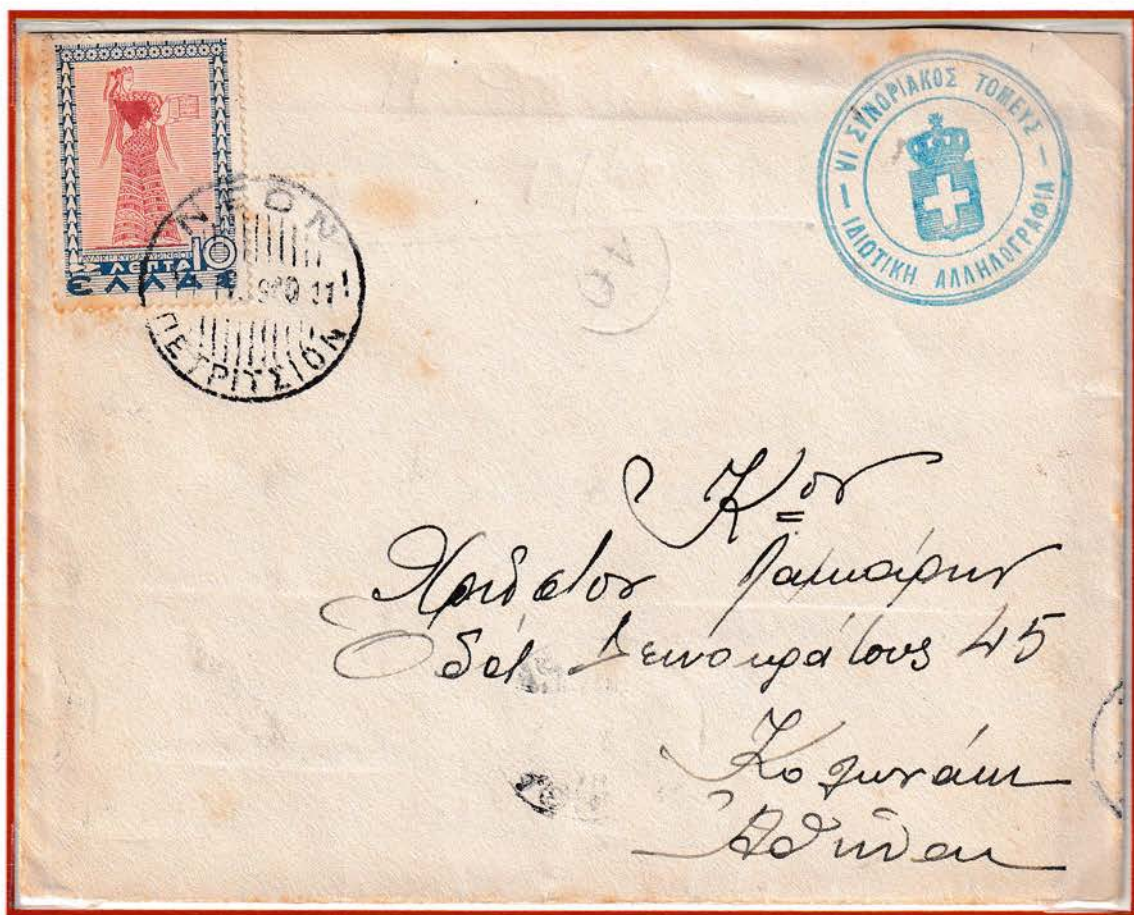 ΛΕΠΤΑ 10
ΕΛΛΑΣ
ΝΕΟΝ
ΠΕΤΡΙΤΣΙΟΝ
VI ΣΥΝΟΡΙΑΚΟΣ ΤΟΜΕΥΣ
ΙΔΙΩΤΙΚΗ ΑΛΛΗΛΟΓΡΑΦΙΑ
Κον
Χρῆστον
Ὁδὸς Ξεινοκράτους 45
Κολωνάκι
Ἀθῆναι